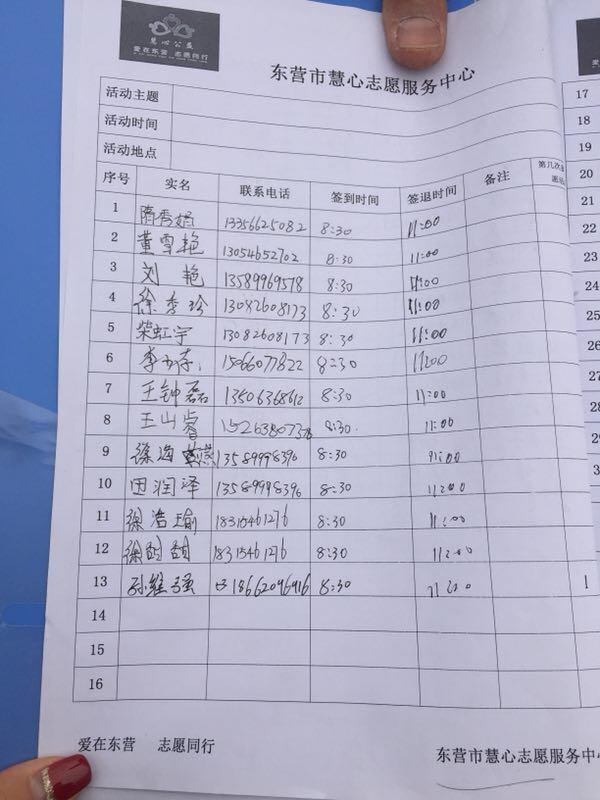 慧心公益
爱在东营 志愿同行
东营市慧心志愿服务中心
活动主题
活动时间
活动地点
序号 实名 联系电话 签到时间 签退时间 备注 第几次
1 隋秀娟 13356625082 8:30 11:00
2 董雪艳 13054652702 8:30 11:00
3 刘艳 13589969578 8:30 11:00
4 徐秀珍 13082608173 8:30 11:00
5 荣虹宇 13082608173 8:30 11:00
6 李 15066077822 8:30 11:00
7 王钟磊 13506368612 8:30 11:00
8 王山睿 15263807378 8:30 11:00
9 徐海燕 13589998396 8:30 11:00
10 田润泽 13589998396 8:30 11:00
11 徐浩瑜 18315461276 8:30 11:00
12 徐甜甜 18315461276 8:30 11:00
13 孙维强 18662096916 8:30 11:00
14
15
16
爱在东营 志愿同行
东营市慧心志愿服务中
17
18
19
20
21
22
23
24
25
26
27
28
29
30
31
1